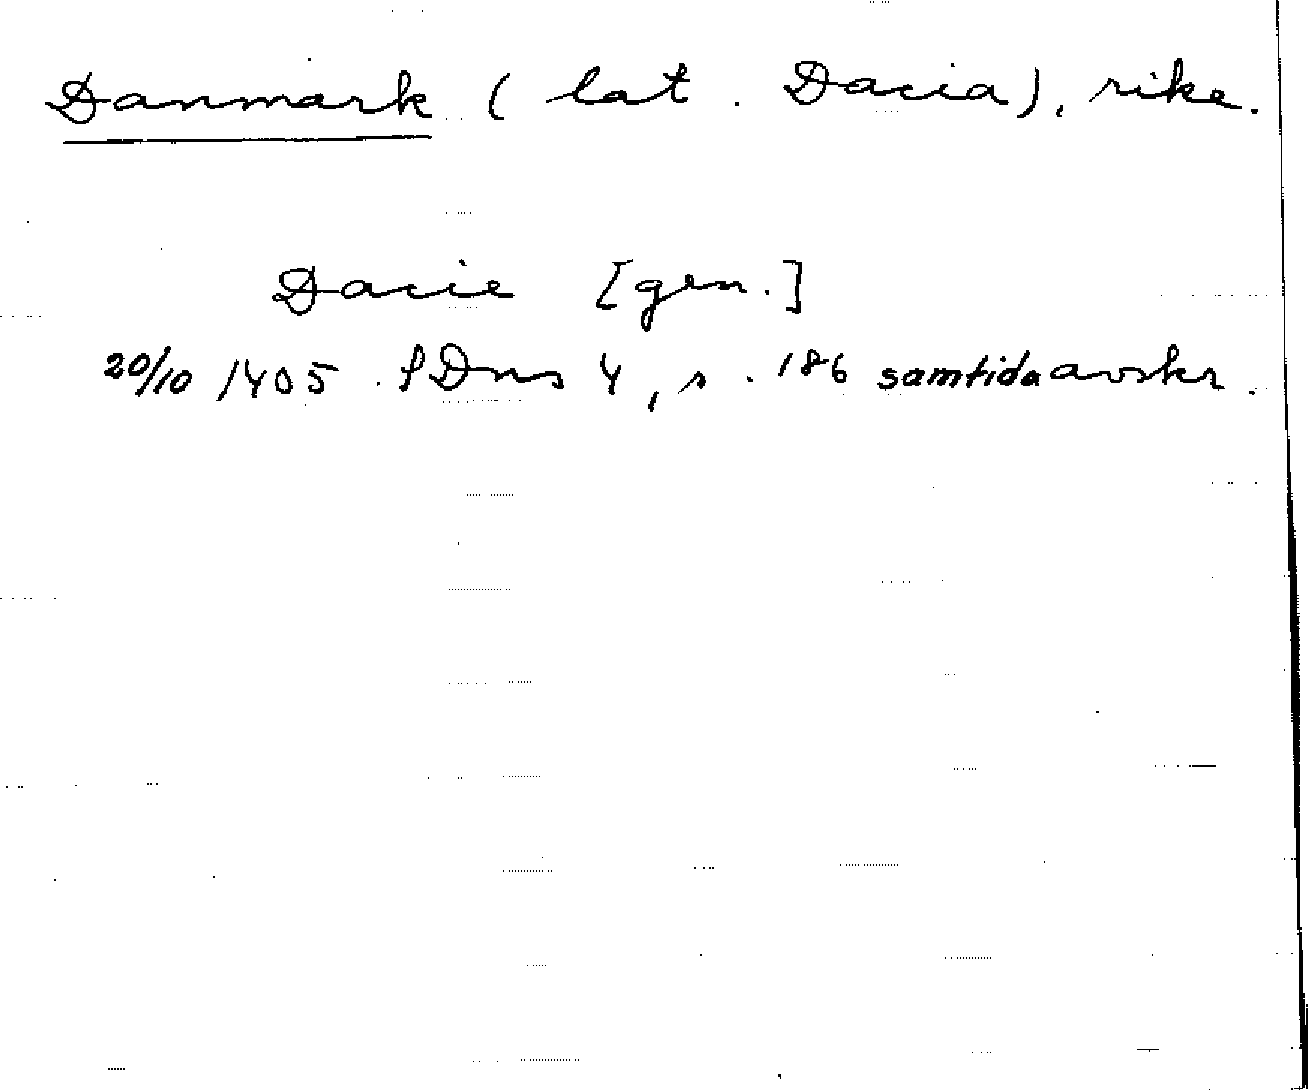 Danmark (lat. Dacia), rike.
Dacie [gen.]
20/10 1405. SDns 4, s. 186 samtida avskr.